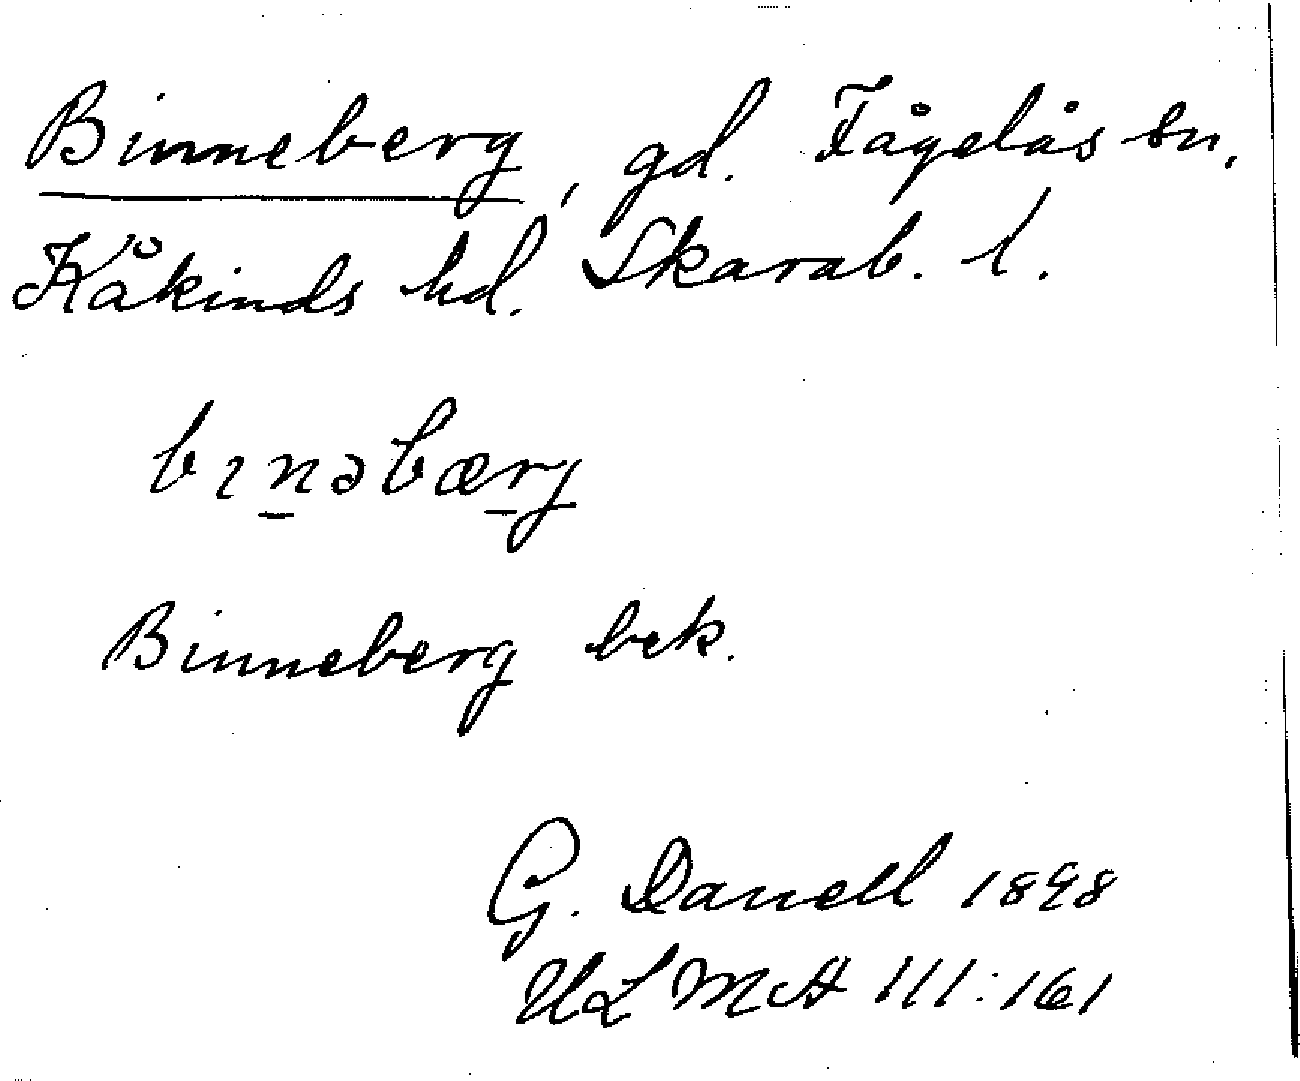 Binneberg, gd. Fågelås sn,
Kåkinds hd. Skarab. l.
bın̲əbær̲g
Binneberg bek.
G. Danell 1898
ULMA 111:161